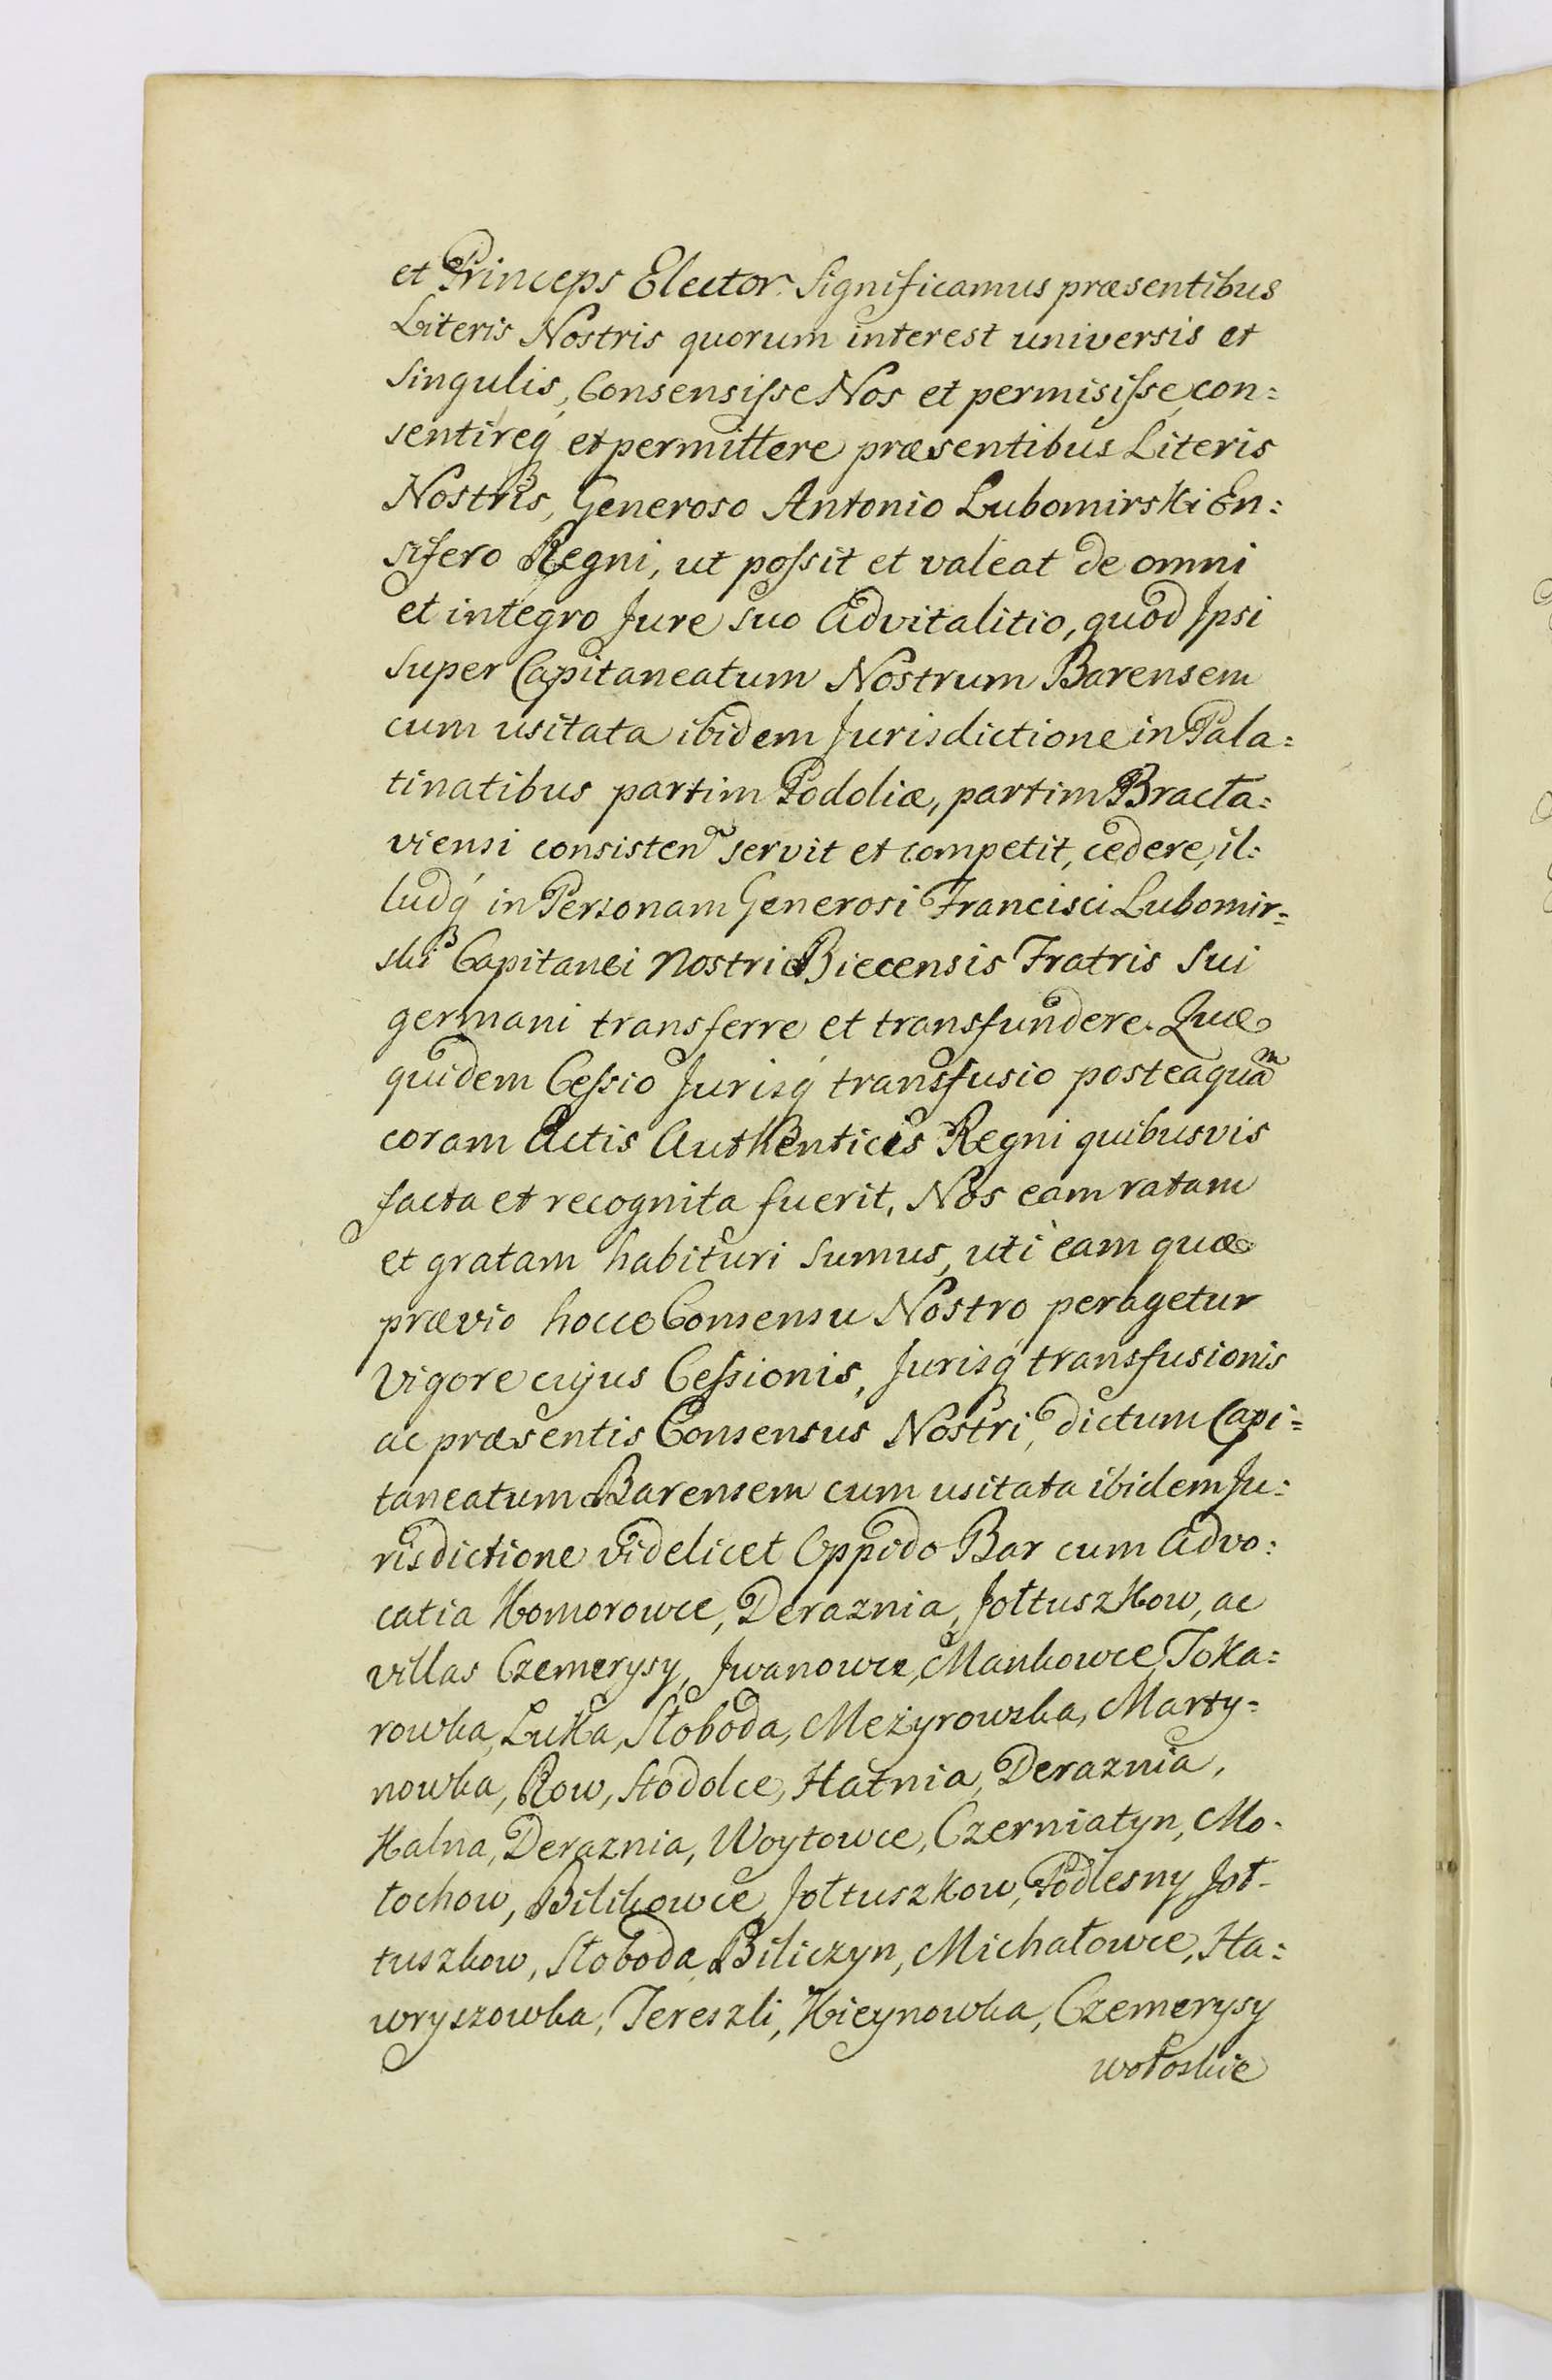 et Princeps Elector. Significamus præsentibus
Literis Nostris quorum interest universis et
Singulis, Consensiſse Nos et permisiſse, con:
sentireq́ et permittere præsentibus Literis
Nostris, Generoso Antonio Lubomirski En:
sifero Regni, ut poſsit et valeat de omni
et integro Jure suo Advitalitio, quod Ipsi
Super Capitaneatum Nostrum Barensem
cum usitata ibidem Jurisdictione in Pala:
tinatibus partim Podoliæ, partim Bracta:
viensi consisten̄ servit et competit, cedere, il:
ludq́ in Personam Generosi Francisci Lubomir:
ski Capitanei Nostri Biecensis Fratris Sui
germani transferre et transfundere. Quæ
quidem Ceſsio Jurisq́ transfusio posteaquam
coram Actis Authenticis Regni quibusvis
facta et recognita fuerit, Nos eam ratam
et gratam habituri sumus, uti eam quæ
prævio hocce Consensu Nostro peragetur
Vigore cujus Ceſsionis, Jurisq́ transfusionis
ac præsentis Consensus Nostri, dictum Capi:
taneatum Barensem cum usitata ibidem Ju:
risdictione videlicet Oppido Bar cum Advo:
catia Komorowce, Deraznia, Jołtuszkow, ac
villas Czemerysy, Jwanowce, Mankowce, Toka:
rowka, Luka, Słoboda, Meżyrowska, Marty:
nowka, Row, Stodolce, Hatnia, Deraznia,
Kalna, Deraznia, Woytowce, Czerniatyn, Mo:
tochow, Bilikowce, Jołtuszkow, Podlesny Joł:
tuszkow, Słoboda, Biliczyn, Michałowce, Ha:
wryszowka, Tereszki, Kieynowka, Czemerysy
wołoskie